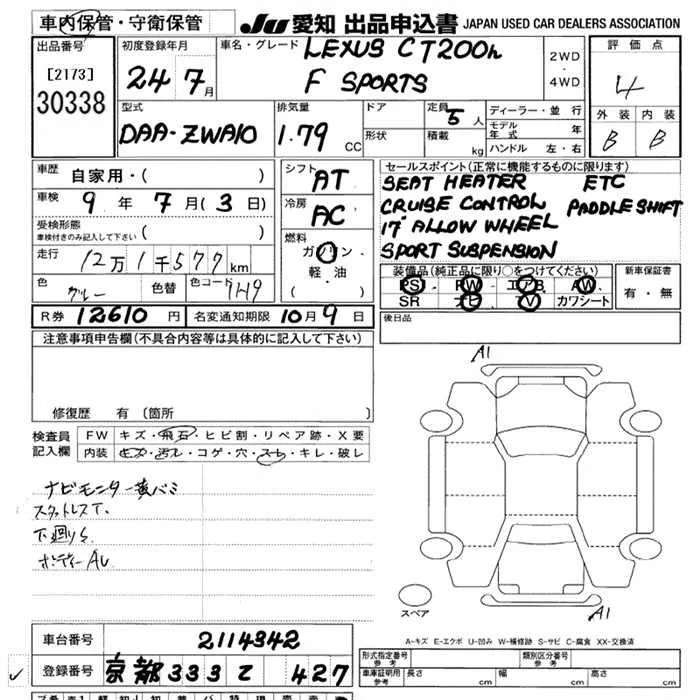 車内保管・守衛保管
JU 愛知 出品申込書 JAPAN USED CAR DEALERS ASSOCIATION
出品番号
[2173]
30338
初度登録年月
24 7月
車名・グレード
LEXUS CT200h
F SPORTS
2WD
・
4WD
評価点
4
外装 内装
B B
型式
DAA-ZWA10
排気量
1.79 CC
ドア
形状
定員 5人
積載 kg
ディーラー・並行
モデル年式 年
ハンドル 左・右
車歴 自家用・( )
車検 9年 7月(3日)
受検形態
車検付きのみ記入して下さい ( )
走行 12万1千577km
色 グレー 色替 色コード 1H9
シフト AT
冷房 AC
燃料
ガソリン
軽油
( )
セールスポイント(正常に機能するものに限ります)
SEAT HEATER ETC
CRUISE CONTROL PADDLE SHIFT
17" ALLOW WHEEL
SPORT SUSPENSION
装備品(純正品に限り○をつけてください)
PS PW エアB AW
SR ナビ TV カワシート
新車保証書
有・無
R券 12610円 名変通知期限 10月9日
後日品
注意事項申告欄(不具合内容等は具体的に記入して下さい)
修復歴 有 〔箇所
検査員記入欄
FW キズ・飛石・ヒビ割・リペア跡・X要
内装 キズ・汚れ・コゲ・穴・スレ・キレ・破レ
ナビモニター黄バミ
下廻りS
ボディーAU
A1
A1
スペア
A-キズ E-エクボ U-凹み W-補修跡 S-サビ C-腐食 XX-交換済
車台番号 2114342
登録番号 京都 333 て 427
形式指定番号
参考
類別区分番号
参考
車庫証明用
参考
長さ cm 幅 cm 高さ cm